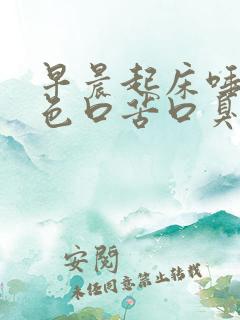 早晨起床唾
色口苦口臭
安閱
未经同意禁止转载